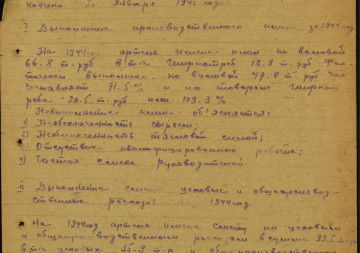 начено 20 января 1945 год.
I Выполнение производственного плана за 1944 год
На 1944 год артель имела план по валовой
66.8 т. руб в т.ч. ширпотреб 18.8 т. руб Фак-
тически выполнено по валовой 47.8 т. руб что
составляет 71.5% и по товарам ширпот
реба 20.5 т. руб или 109.3%
Невыполнение плана объясняется:
1) Необеспеченность сырьем;
2) Необеспеченность тягловой силой;
3) Отсутствие квалифицированных ;
4) Частая смена руководителей.
II Выполнение сметы цеховые и общепроизвод-
ственные расходы за 1944 год
На 1944 год артель имела смету по цеховым
и общепроизводственным расходам в сумме 33.5 т.р
в т.ч цеховых 25.3 т.р и общепроизводственных